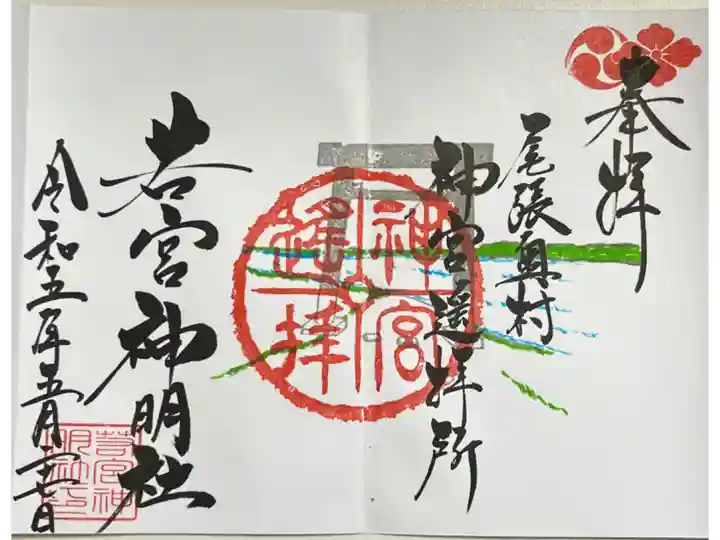 奉拝
尾張奥村
神宮遥拝所
神宮
遥拝
若宮神明社
若宮神
明社印
令和五年五月二十七日